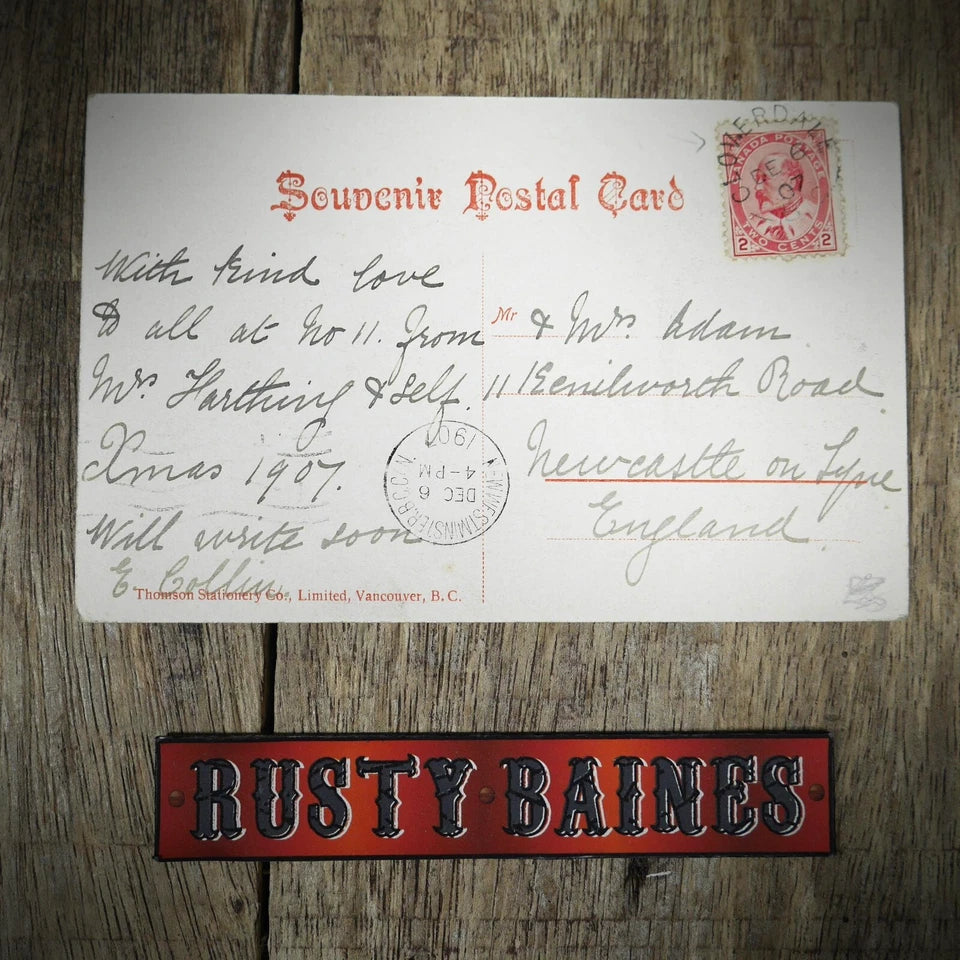 Souvenir Postal Card
CLOVERDALE
DE 6
07
CANADA POSTAGE
2 TWO CENTS 2
With kind love
to all at No 11. from
Mrs Harthing & Self.
Xmas 1907.
Will write soon
E Collin
Mr & Mrs Adam
11 Kenilworth Road
Newcastle on Tyne
England
NEW WESTMINSTER. B.C. CAN.
4-PM
DEC 6
190
Thomson Stationery Co., Limited, Vancouver, B.C.
RUSTY BAINES